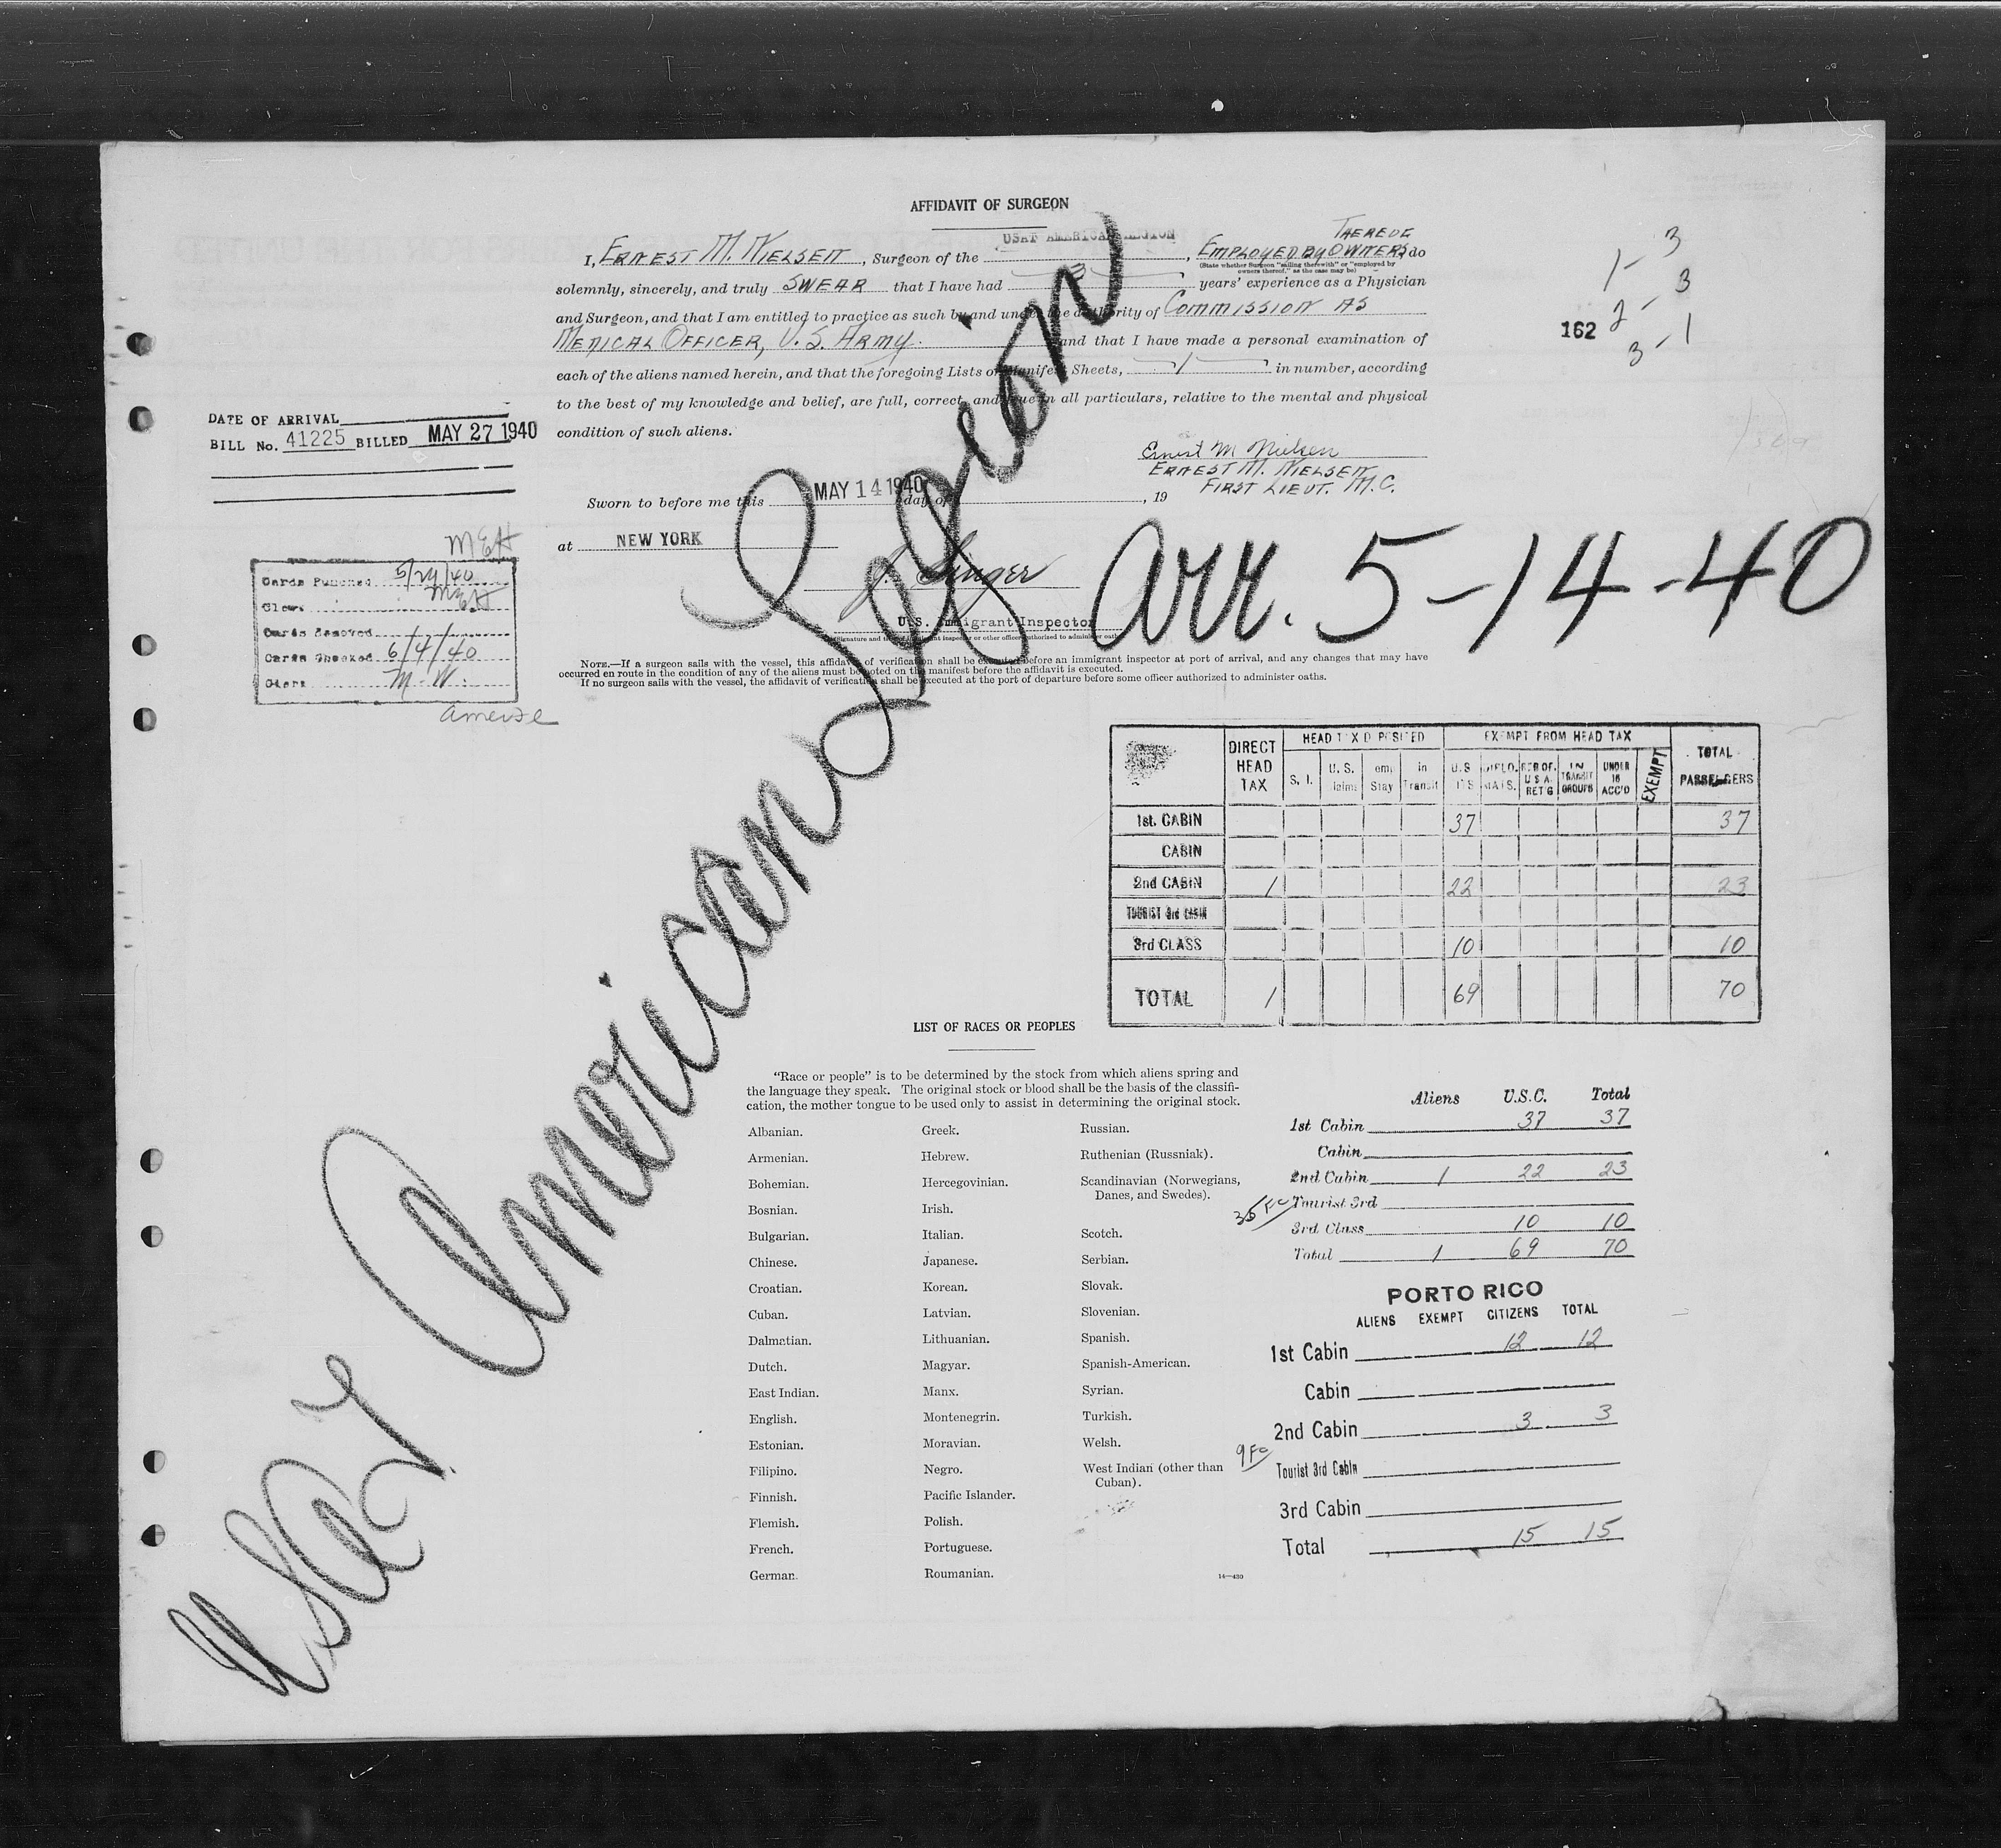 AFFIDAVIT OF SURGEON
THEREOF
I, ERNEST M. NIELSEN, Surgeon of the USAT AMERICAN LEGION, EMPLOYED BY OWNERS do
(State whether Surgeon "sailing therewith" or "employed by
owners thereof," as the case may be)
solemnly, sincerely, and truly SWEAR that I have had 3 years' experience as a Physician
and Surgeon, and that I am entitled to practice as such by and under the authority of COMMISSION AS
MEDICAL OFFICER, U. S. ARMY. and that I have made a personal examination of
each of the aliens named herein, and that the foregoing Lists or Manifest Sheets, 1 in number, according
to the best of my knowledge and belief, are full, correct, and true in all particulars, relative to the mental and physical
condition of such aliens.
1- 3
2- 3
3-1
162
DATE OF ARRIVAL
BILL No. 41225 BILLED MAY 27 1940
Ernest M Nielsen
ERNEST M. NIELSEN
FIRST LIEUT. M.C.
Sworn to before me this MAY 14 1940 day of , 19
at NEW YORK
J. Singer
U.S. Immigrant Inspector
USAT American Legion
arr. 5-14-40
MEH
Cards Punched 5/24/40
Clerk MEH
Cards Removed
Cards Checked 6/4/40
Clerk M.W.
NOTE.—If a surgeon sails with the vessel, this affidavit of verification shall be executed before an immigrant inspector at port of arrival, and any changes that may have
occurred en route in the condition of any of the aliens must be noted on the manifest before the affidavit is executed.
If no surgeon sails with the vessel, the affidavit of verification shall be executed at the port of departure before some officer authorized to administer oaths.
DIRECT HEAD TAX HEAD TAX DEPOSITED EXEMPT FROM HEAD TAX TOTAL PASSENGERS
S. I. U. S. Claims Temp Stay in Transit U.S. CIT'S DIPLO-MATS. RTB OF. U.S.A. RET'G IN TRANSIT GROUPS UNDER 16 ACC'D EXEMPT
1st. CABIN 37 37
CABIN
2nd CABIN 1 22 23
TOURIST 3rd CABIN
3rd CLASS 10 10
TOTAL 1 69 70
LIST OF RACES OR PEOPLES
"Race or people" is to be determined by the stock from which aliens spring and
the language they speak. The original stock or blood shall be the basis of the classifi-
cation, the mother tongue to be used only to assist in determining the original stock.
Albanian.
Armenian.
Bohemian.
Bosnian.
Bulgarian.
Chinese.
Croatian.
Cuban.
Dalmatian.
Dutch.
East Indian.
English.
Estonian.
Filipino.
Finnish.
Flemish.
French.
German.
Greek.
Hebrew.
Hercegovinian.
Irish.
Italian.
Japanese.
Korean.
Latvian.
Lithuanian.
Magyar.
Manx.
Montenegrin.
Moravian.
Negro.
Pacific Islander.
Polish.
Portuguese.
Roumanian.
Russian.
Ruthenian (Russniak).
Scandinavian (Norwegians,
Danes, and Swedes).
Scotch.
Serbian.
Slovak.
Slovenian.
Spanish.
Spanish-American.
Syrian.
Turkish.
Welsh.
West Indian (other than
Cuban).
14—430
Aliens U.S.C. Total
1st Cabin 37 37
Cabin
2nd Cabin 1 22 23
Tourist 3rd
3rd Class 10 10
Total 1 69 70
PORTO RICO
ALIENS EXEMPT CITIZENS TOTAL
1st Cabin 12 12
Cabin
2nd Cabin 3 3
Tourist 3rd Cabin
3rd Cabin
Total 15 15